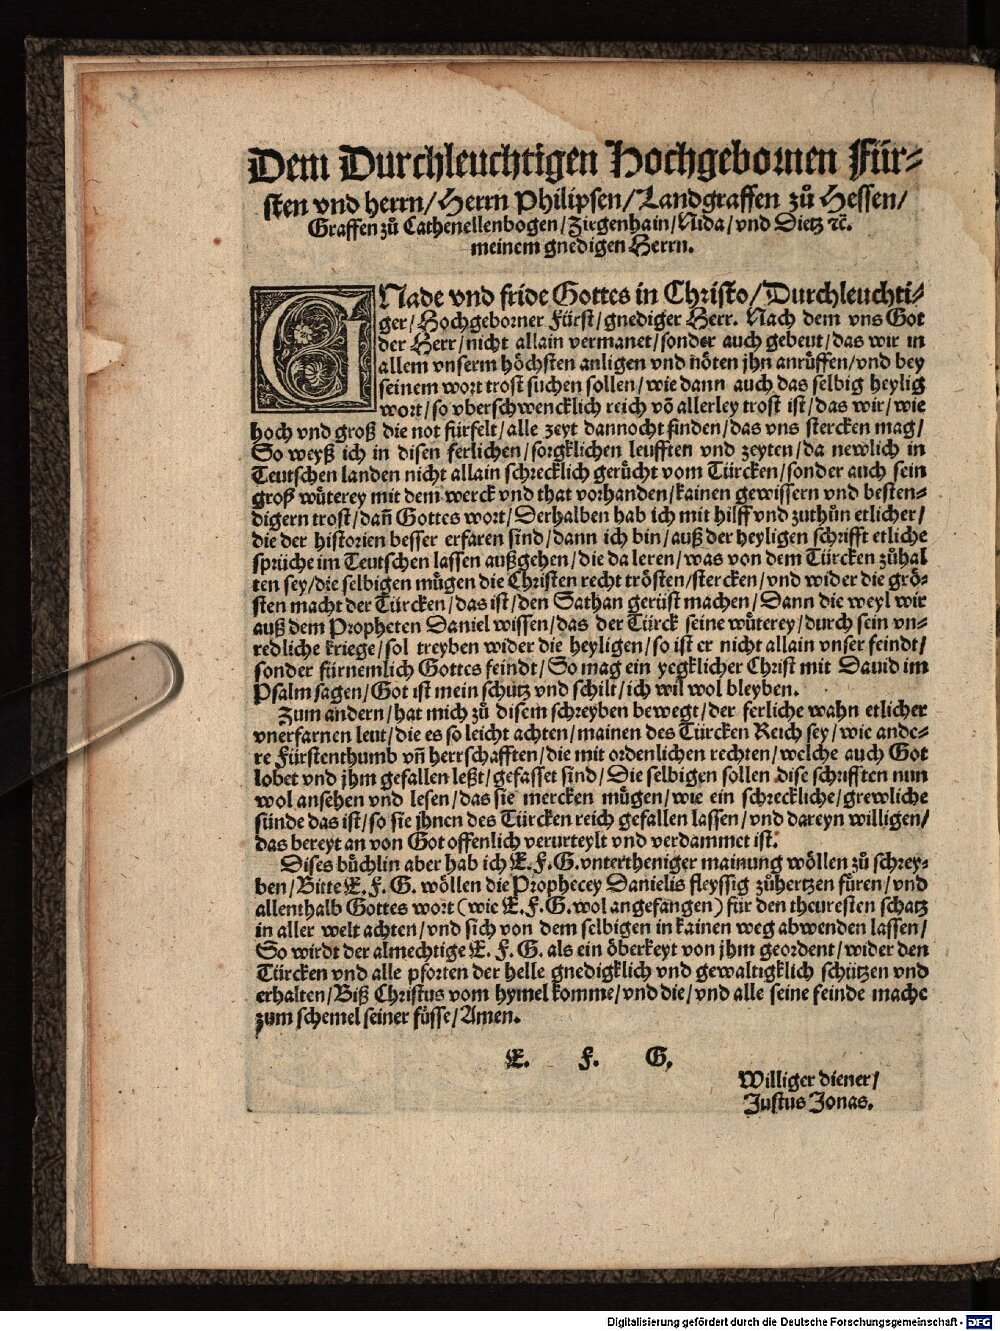 Dem Durchleuchtigen Hochgebornen Für⸗
sten vnd herrn/Herrn Philipsen/Landgraffen zů Hessen/
Graffen zů Cathenellenbogen/Ziegenhain/Nida/vnd Dietz ꝛc̃.
meinem gnedigen Herrn.
GNade vnd fride Gottes in Christo/Durchleuchti⸗
ger/Hochgeborner Fürst/gnediger Herr. Nach dem vns Got
der Herr/nicht allain vermanet/sonder auch gebeut/das wir in
allem vnserm höchsten anligen vnd nöten jhn anrüffen/vnd bey
seinem wort trost suchen sollen/wie dann auch das selbig heylig
wort/so vberschwencklich reich võ allerley trost ist/das wir/wie
hoch vnd groß die not fürfelt/alle zeyt dannocht finden/das vns stercken mag/
So weyß ich in disen ferlichen/sorgklichen leufften vnd zeyten/da newlich in
Teutschen landen nicht allain schrecklich gerücht vom Türcken/sonder auch sein
groß wüterey mit dem werck vnd that vorhanden/kainen gewissern vnd besten⸗
digern trost/dañ Gottes wort/Derhalben hab ich mit hilff vnd zuthůn etlicher/
die der historien besser erfaren sind/dann ich bin/auß der heyligen schrifft etliche
sprüche im Teutschen lassen außgehen/die da leren/was von dem Türcken zůhal
ten sey/die selbigen mügen die Christen recht trösten/stercken/vnd wider die grö⸗
sten macht der Türcken/das ist/den Sathan gerüst machen/Dann die weyl wir
auß dem Propheten Daniel wissen/das der Türck seine wüterey/durch sein vn⸗
redliche kriege/sol treyben wider die heyligen/so ist er nicht allain vnser feindt/
sonder fürnemlich Gottes feindt/So mag ein yegklicher Christ mit Dauid im
Psalm sagen/Got ist mein schutz vnd schilt/ich wil wol bleyben.
Zum andern/hat mich zů disem schreyben bewegt/der ferliche wahn etlicher
vnerfarnen leut/die es so leicht achten/mainen des Türcken Reich sey/wie ande⸗
re Fürstenthumb vñ herrschafften/die mit ordenlichen rechten/welche auch Got
lobet vnd jhm gefallen leßt/gefasset sind/Die selbigen sollen dise schrifften nun
wol ansehen vnd lesen/das sie mercken mügen/wie ein schreckliche/grewliche
sünde das ist/so sie jhnen des Türcken reich gefallen lassen/vnd dareyn willigen/
das bereyt an von Got offenlich verurteylt vnd verdammet ist.
Dises büchlin aber hab ich E. F. G. vntertheniger mainung wöllen zů schrey⸗
ben/Bitte E. F. G. wöllen die Prophecey Danielis fleyssig zůhertzen füren/vnd
allenthalb Gottes wort (wie E. F. G. wol angefangen) für den theuresten schatz
in aller welt achten/vnd sich von dem selbigen in kainen weg abwenden lassen/
So wirdt der almechtige E. F. G. als ein öberkeyt von jhm geordent/wider den
Türcken vnd alle pforten der helle gnedigklich vnd gewaltigklich schützen vnd
erhalten/Biß Christus vom hymel komme/vnd die/vnd alle seine feinde mache
zum schemel seiner füsse/Amen.
E. F. G.
Williger diener/
Justus Jonas.
Digitalisierung gefördert durch die Deutsche Forschungsgemeinschaft - DFG